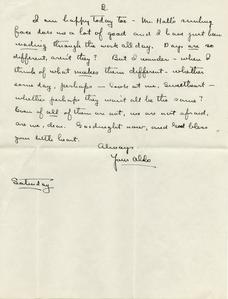 2.
I am happy today too - Mr. Hall's smiling
face does me a lot of good and I have just been
wading through the work all day. Days are so
different, aren't they? But I wonder - when I
think of what makes them different - whether
some day, perhaps - look at me, Sweetheart -
whether perhaps they won't all be the same?
Even if all of them are not, we are not afraid,
are we, dear. Goodnight now, and God bless
your little heart.
Always
Your
Saturday.